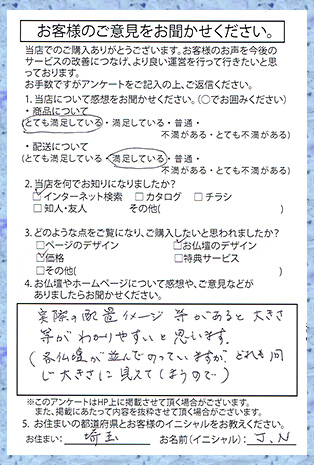 お客様のご意見をお聞かせください。
当店でのご購入ありがとうございます。お客様のお声を今後の
サービスの改善につなげ、より良い運営を行って行きたいと思っ
ております。
お手数ですがアンケートをご記入の上、ご返信ください。
1. 当店について感想をお聞かせください。(○でお囲みください)
・商品について
(とても満足している・満足している・普通・
不満がある・とても不満がある)
・配送について
(とても満足している・満足している・普通・
不満がある・とても不満がある)
2. 当店を何でお知りになりましたか?
☑インターネット検索 □カタログ □チラシ
□知人・友人 その他( )
3. どのような点をご覧になり、ご購入したいと思われましたか?
□ページのデザイン ☑お仏壇のデザイン
☑価格 □特典サービス
□その他( )
4. お仏壇やホームページについて感想や、ご意見などが
ありましたらお聞かせください。
実際の配置イメージ等があると大きさ
等がわかりやすいと思います。
(各仏壇が並んでのっていますが、どれも同
じ大きさに見えてしまうので)
※このアンケートはHP上に掲載させて頂く場合がございます。
また、掲載にあたって内容を抜粋させて頂く場合がございます。
5. お住まいの都道府県とお客様のイニシャルをお教えください。
お住まい: 埼玉 お名前(イニシャル): J.N